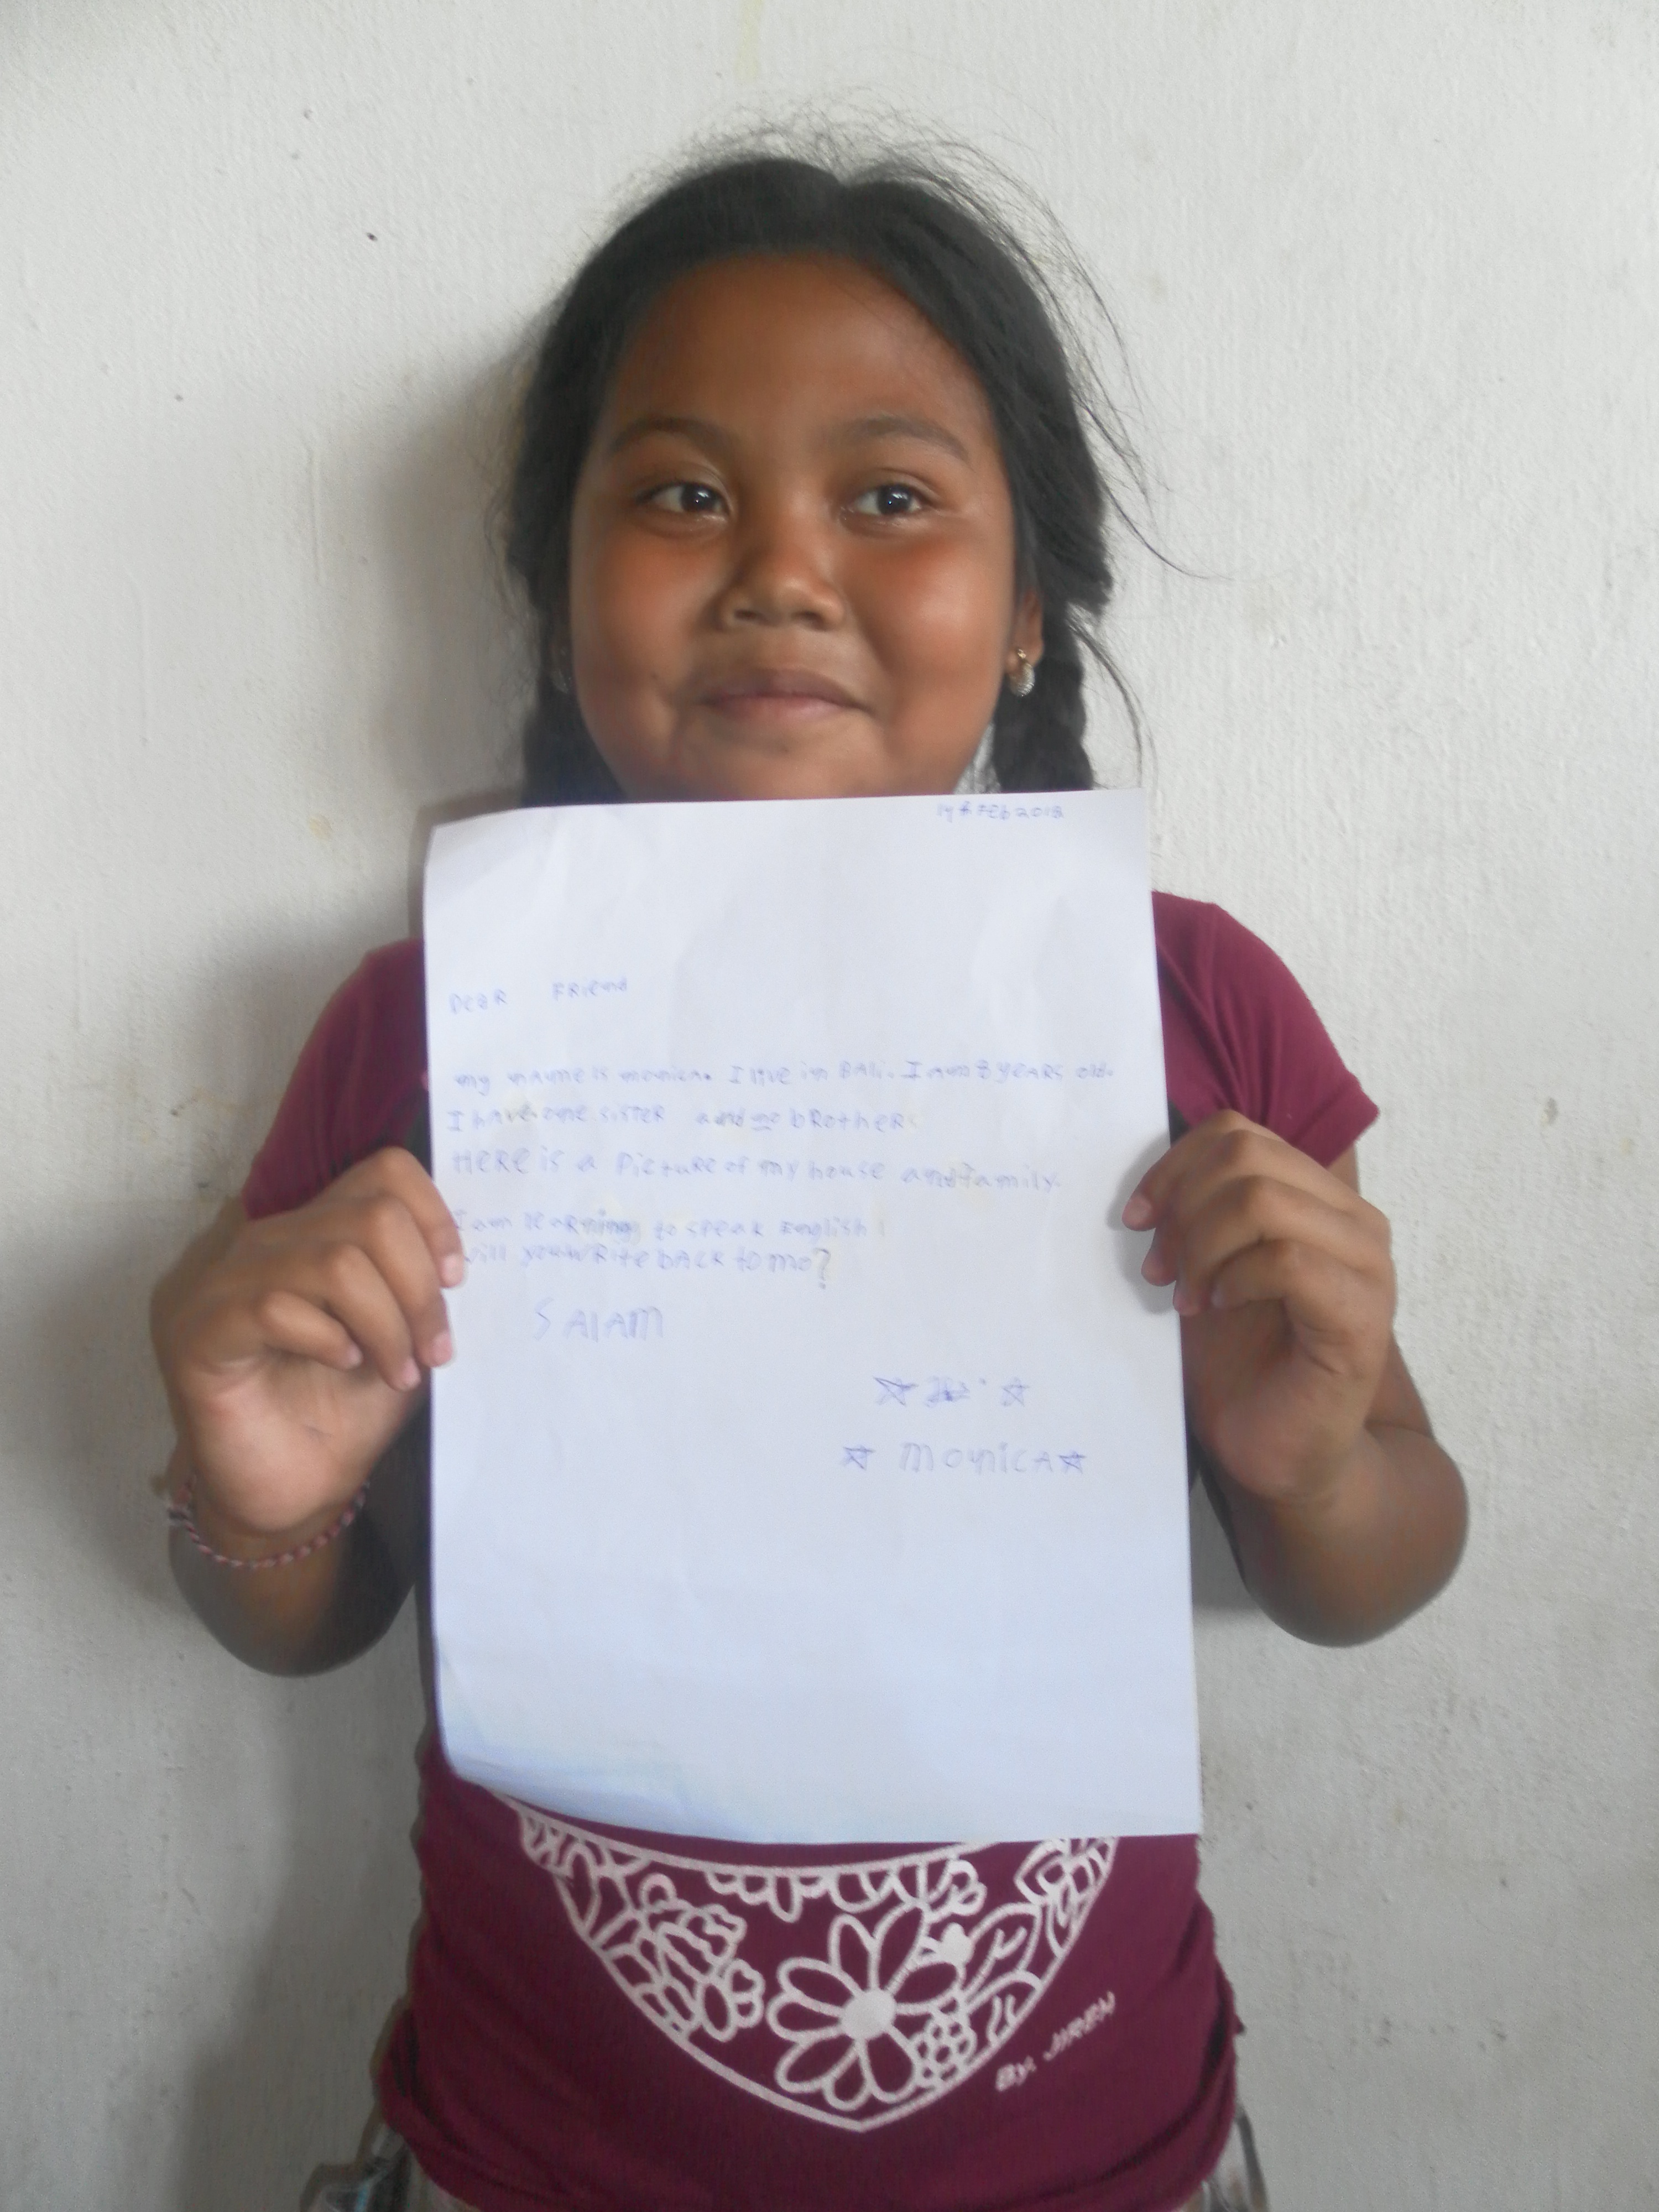 14th Feb 2018
Dear Friend
my name is monica. I live in BALi. I am 8 years old.
I have one sister and no brother.
Here is a Picture of my house and family.
I am learning to speak English!
Will you write back to me?
SALAM
☆ ☆
☆ monica ☆
By. JIREH